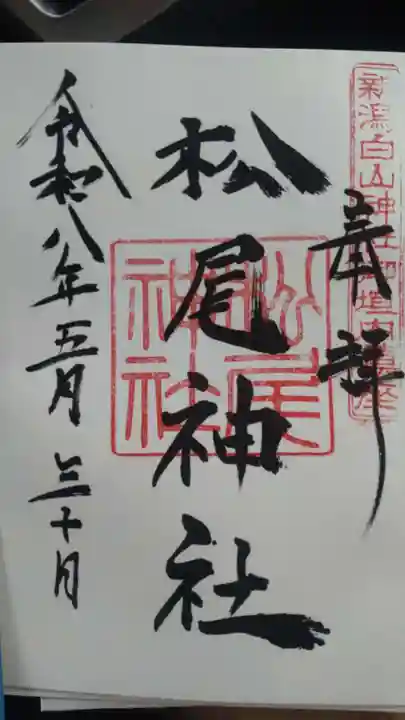 新潟白山神社御垣内鎮座
奉拝
松尾神社
松尾
神社
令和八年五月三十日